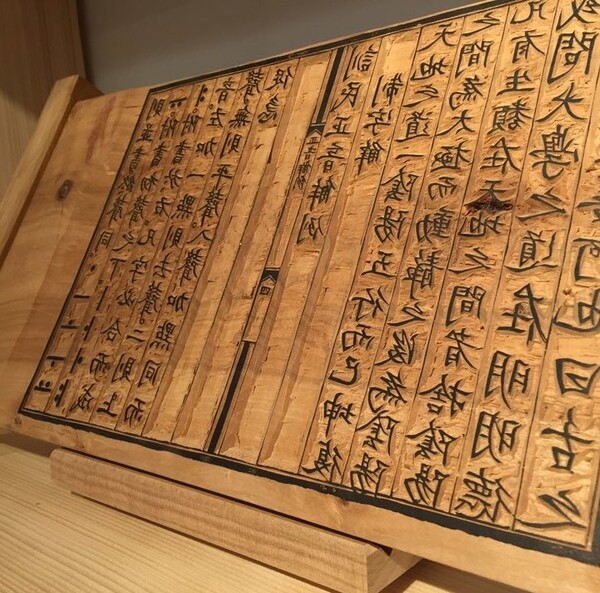 則並書終聲同。ㆍㅡㅗㅜㅛ
ㅠ附書初聲之下。ㅣㅏㅓㅑ
ㅕ附書於右。凡字必合而成
音。左加一點則去聲。二則上
聲。無則平聲。入聲加點同而
促急
正音解例 四
訓民正音解例
制字解
天地之道一陰陽五行而已坤復
之間為太極而動靜之後為陰陽
凡有生類在天地之間者捨陰陽
或問大學之道在明明德
何也曰古之